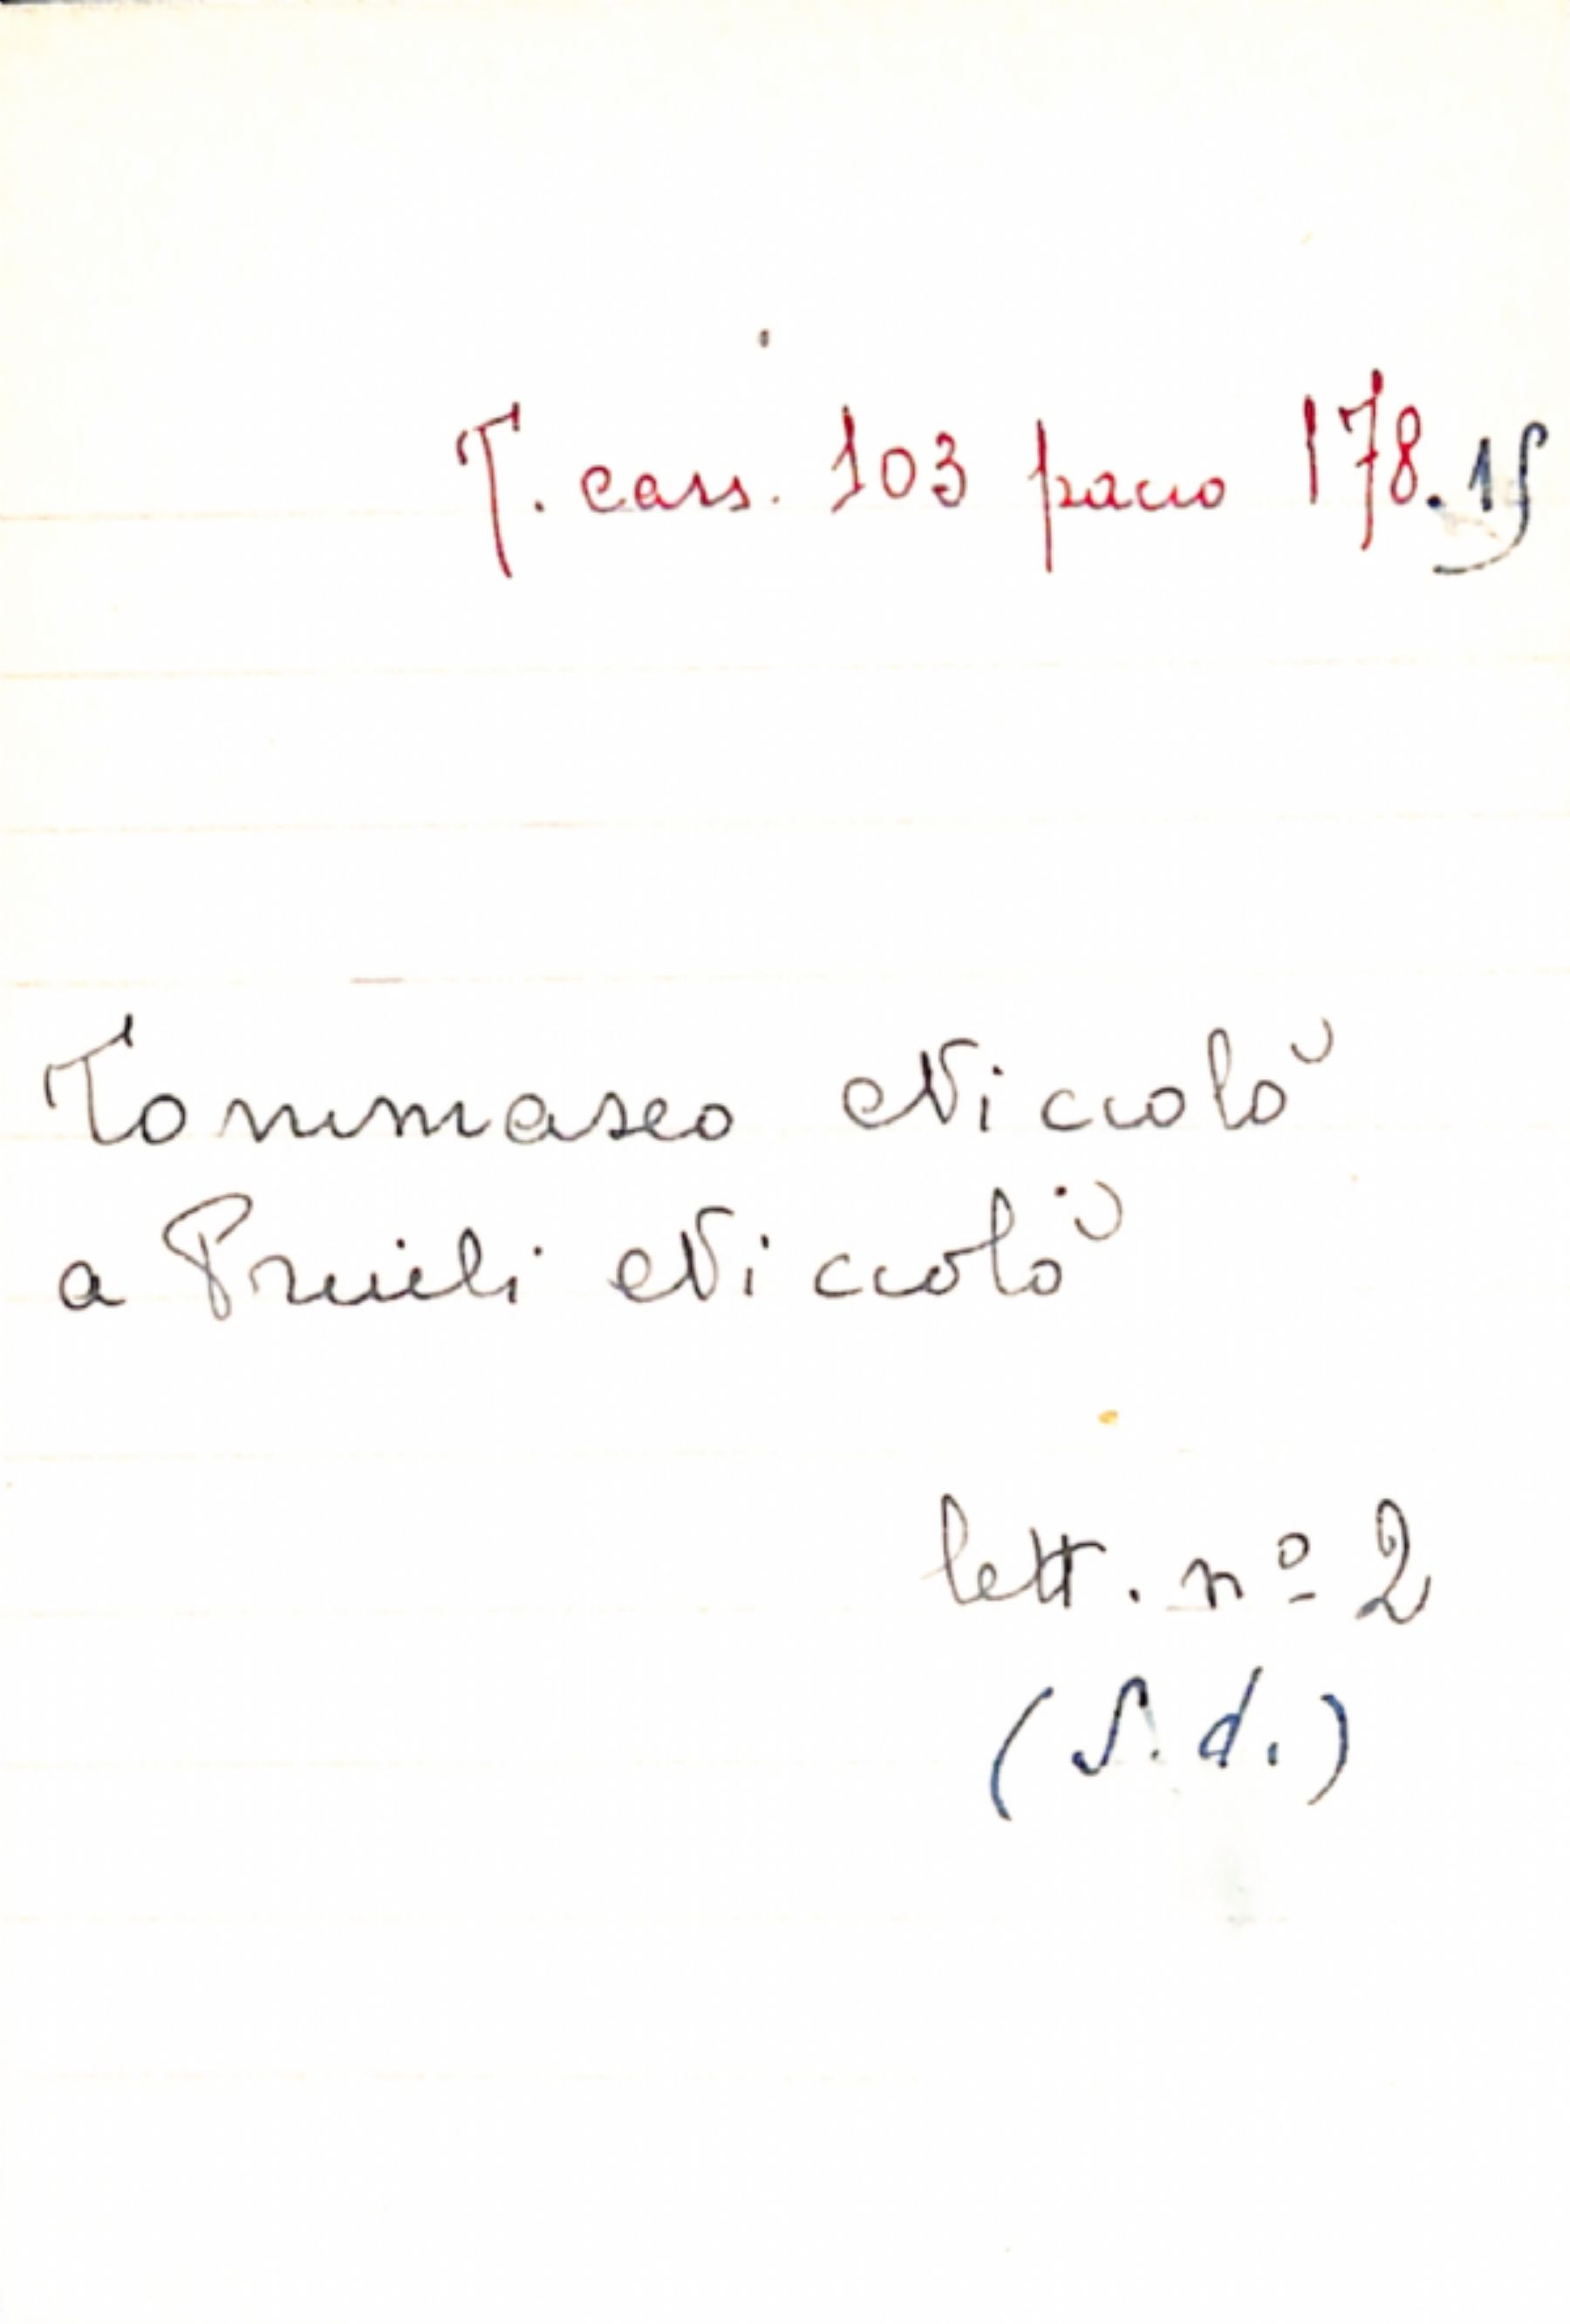 T. cass. 103 pacco 178.15
Tommaseo Niccolò
a Priuli Niccolò
lett. nº 2
(S.d.)